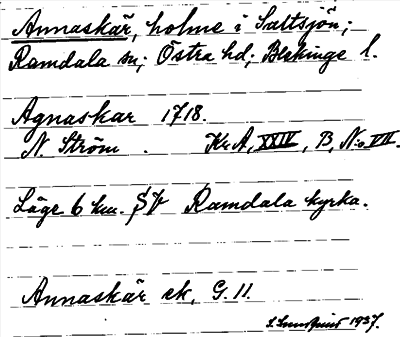 Annaskär, holme i Saltsjön;
Ramdala sn; Östra hd; Blekinge l.
Agnaskar 1718.
N. Ström. Kr. A, XXIV, B, No VII.
Läge 6 km. SV Ramdala kyrka.
Annaskär ek, G. 11.
1937.